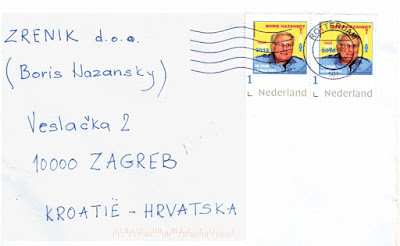 ZRENIK d.o.o.
(Boris Nazansky)
Veslačka 2
10000 ZAGREB
KROATIË - HRVATSKA
BORIS NAZANSKY
2018
1
Nederland
BORIS NAZANSKY
1
Nederland
ROTTERDAM